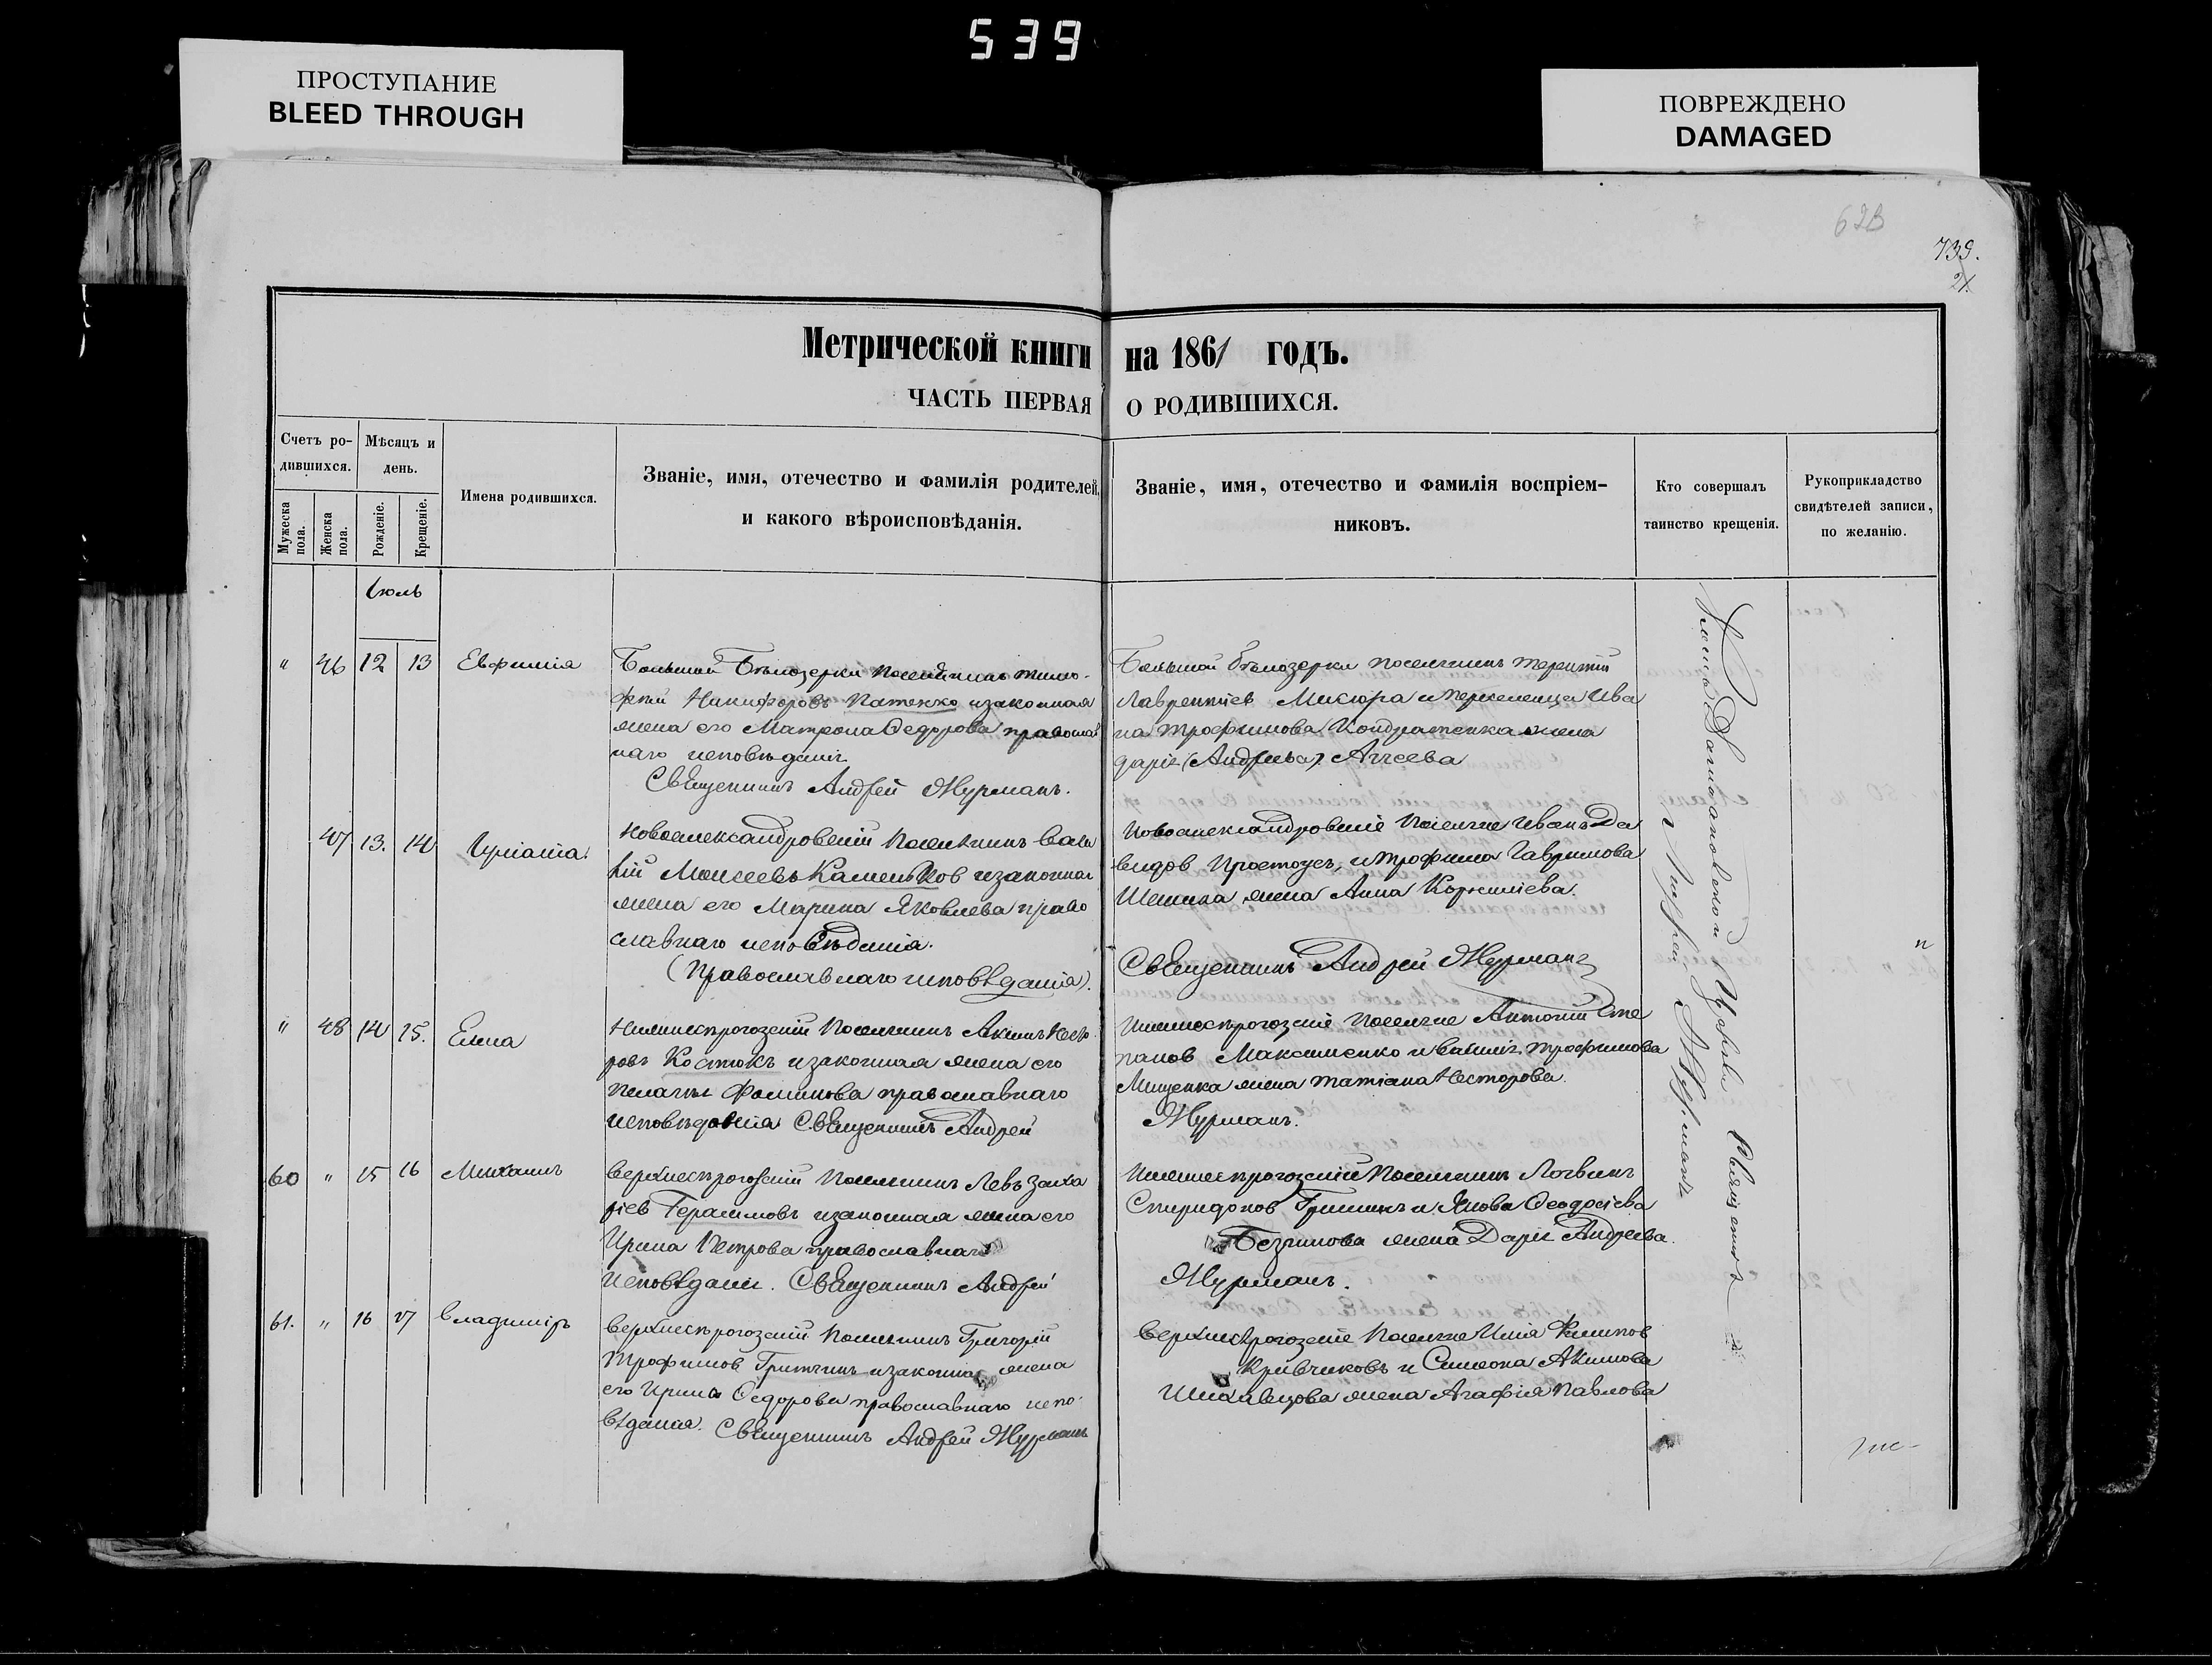 539
ПРОСТУПАНИЕ
BLEED THROUGH
ПОВРЕЖДЕНО
DAMAGED
739.
21.
Метрической книги на 1861 годъ.
ЧАСТЬ ПЕРВАЯ О РОДИВШИХСЯ.
Счетъ ро-
дившихся.
Мужеска
пола.
Женска
пола.
Мѣсяцъ и
день.
Рожденіе.
Крещеніе.
Имена родившихся.
Званіе, имя, отечество и фамилія родителей,
и какого вѣроисповѣданія.
Званіе, имя, отечество и фамилія воспріем-
никовъ.
Кто совершалъ
таинство крещенія.
Рукоприкладство
свидѣтелей записи,
по желанію.
Іюль
" 46 12 13 Евфимія
Большой Бѣлозерки поселянинъ Тимо-
фей Никифоровъ Патенко и законная
жена его Матрона Ѳедорова православ
наго исповѣданія
Священникъ Андрей Журманъ.
Большой бѣлозерки поселянинъ Терентій
Лаврентіев Мисюра и переселенца Ива
на Трофимова Кондратенка жена
Дарія (Андреева) Аггеева
47 13. 14 Іуліанія.
Новоалександровскій поселянинъ Васи
лій Моисеевъ Каменьков и законная
жена его Марина Яковлева право
славнаго исповѣданія.
(Православнаго исповѣданія).
Новоалександровскіе поселяне Иванъ Да
видов Простоусъ, и Трофима Гаврилова
жена Анна Корниліева.
Священникъ Андрей Журманъ
" 48 14 15. Елена
Нижнесѣрогозскій поселянинъ Акимъ Несто
ровъ Костюкъ и законная жена его
Пелагія Фоминова православнаго
исповѣданія Священникъ Андрей
Нижнесѣрогозскіе поселяне Антоній Сте
панов Максименко и Василія Трофимова
Мищенка жена Татіана Несторова.
Журманъ.
60 " 15 16 Михаилъ
Верхнесѣрогозскій поселянинъ Левъ Заха
ріев Герасимовъ и законная жена его
Ирина Петрова православнаго
исповѣданія. Священникъ Андрей
Нижнесѣрогозскій поселянинъ Логвинъ
Спиридонов Гришинъ и Якова Ѳеодосіева
жена Дарія Андреева.
Журманъ.
61. " 16 17 Владиміръ
Верхнесѣрогозскій поселянинъ Григорій
Трофимов и законная жена
его Ирина Ѳедорова православнаго испо-
вѣданія. Священникъ Андрей Журманъ
Верхнесѣрогозскіе поселяне Илія Филипов
Кривчиковъ и Симеона Акимова
жена Агафія Павлова